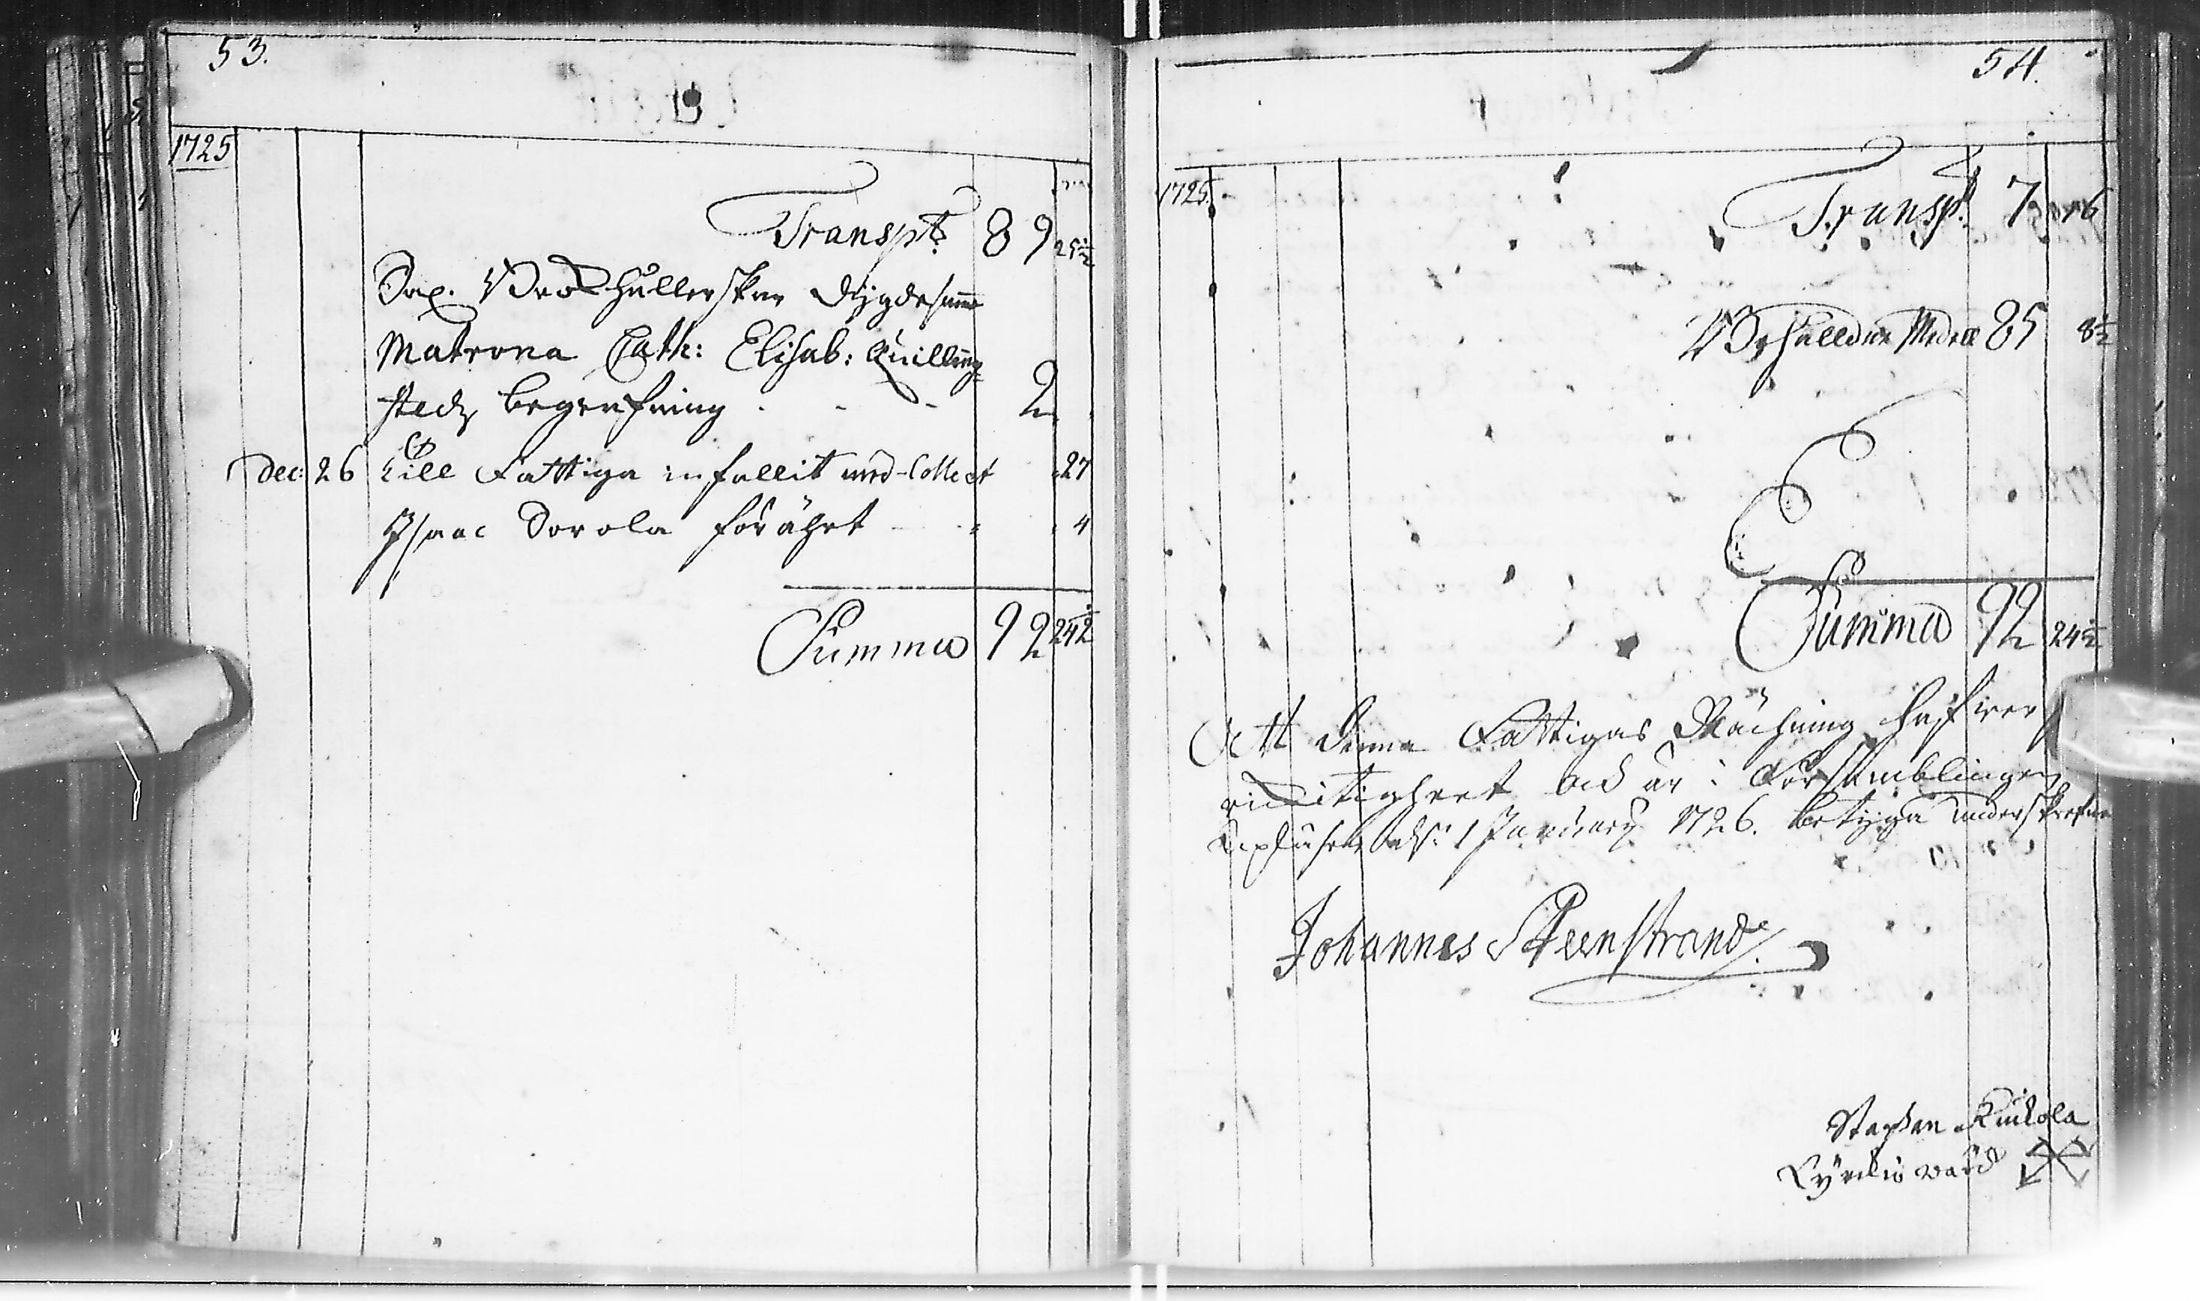 53.
1725
Transpt 89 25½
Sal. Brokhullerskan dygdesamme
Matrona Cath: Elisab: Quilling
steds begrafning - - - 2
Dec: 26 Till Fattiga infallit med Collect 27
Isaac Sorola förährt 4
Summa 92 24½
54.
1725.
Transpt 7 16
Behålldne Medell 85 8½
Summa 92 24½
Att denna Fattigas Räckning hafwer
sin richtigheet och är i Församblingen
d: 1 January 1726. betyga underskrefne
Johannes Steenstrand
Staphan Kuckola
Kyrckiowärd